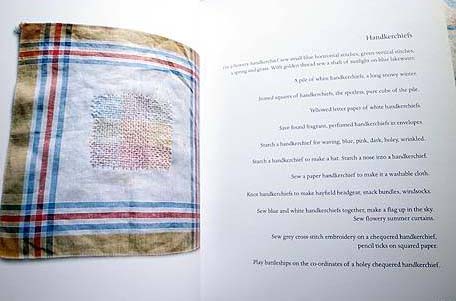 Handkerchiefs
On a flowery handkerchief sew small blue horizontal stitches, green vertical stitches,
a spring and grass. With golden thread sew a shaft of sunlight on blue lakewater.
A pile of white handkerchiefs, a long snowy winter.
Ironed squares of handkerchiefs, the spotless, pure cube of the pile.
Yellowed letter paper of white handkerchiefs.
Save found fragrant, perfumed handkerchiefs in envelopes.
Starch a handkerchief for waving, blue, pink, dark, holey, wrinkled.
Starch a handkerchief to make a hat. Starch a nose into a handkerchief.
Sew a paper handkerchief to make it a washable cloth.
Knot handkerchiefs to make hayfield headgear, snack bundles, windsocks.
Sew blue and white handkerchiefs together, make a flag up in the sky.
Sew flowery summer curtains.
Sew grey cross stitch embroidery on a chequered handkerchief,
pencil ticks on squared paper.
Play battleships on the co-ordinates of a holey chequered handkerchief.